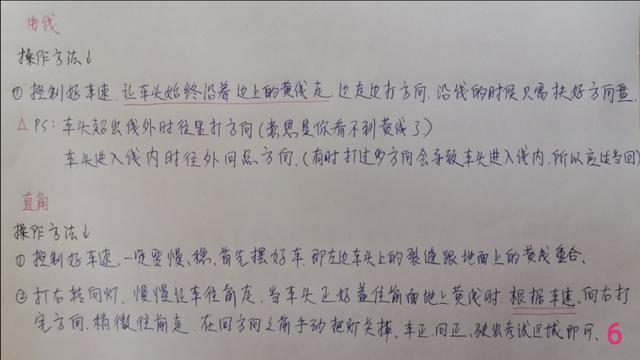 曲线
操作方法↓
① 控制好车速,让车头始终沿着边上的黄线走,边走边打方向,沿线的时候只需扶好方向盘.
△ PS:车头超出线外时往里打方向(意思是你看不到黄线了)
车头进入线内时往外回点方向.(有时打过多方向会导致车头进入线内,所以应适当回)
直角
操作方法↓
① 控制好车速,一定要慢、稳,首先摆好车,即左边车头上的裂缝跟地面上的黄线重合.
② 打右转向灯,慢慢让车往前走,当车头正好盖住前面地上黄线时,根据车速,向右打
完方向,稍微往前走,在回方向之前手动把灯关掉、车正、回正,驶出考试区域即可.
6